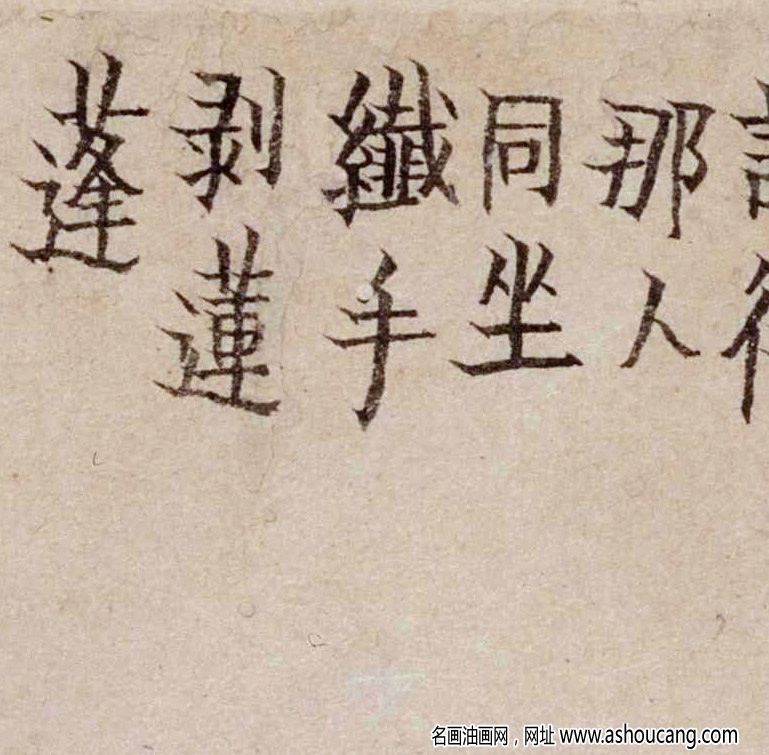 那人
同坐
纖手
剥蓮
蓬
名画油画网，网址 www.ashoucang.com